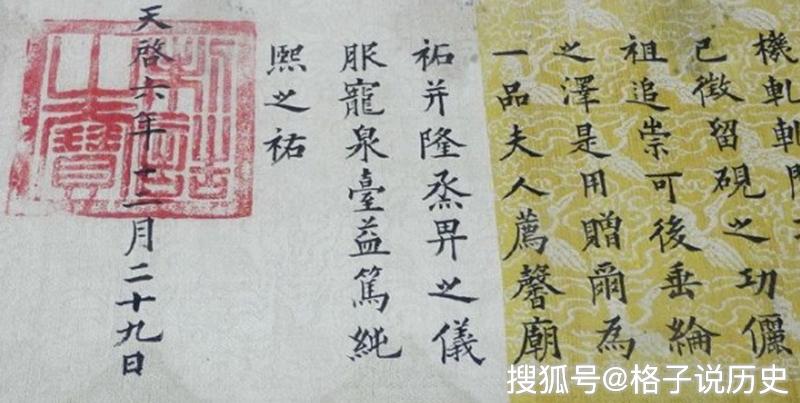 機軋軋
已徵留硯之功儷
祖追崇可後垂綸
之澤是用贈爾為
一品夫人薦馨廟
祏并隆烝畀之儀
服寵泉臺益篤純
熙之祐
天啓六年十二月二十九日
制誥之寶
搜狐号@格子说历史